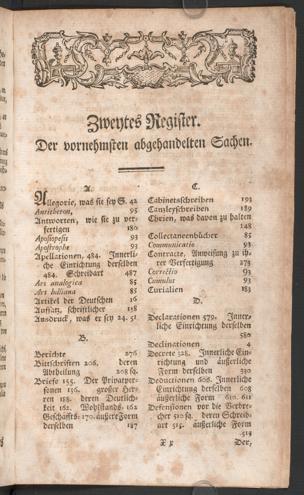 Zweytes Register.
Der vornehmsten abgehandelten Sachen.
A.
Allegorie, was sie sey S. 42
Antitheton, 95
Antworten, wie sie zu ver-
fertigen 180
Aposiopesis 93
Apostrophe 93
Apellationen, 484. Innerli-
che Einrichtung derselben
484. Schreibart 487
Ars analogica 85
Ars lulliana 85
Artikel der Deutschen 16
Aufsatz, schriftlicher 138
Ausdruck, was er sey 24. 51
B.
Berichte 276
Bittschriften 206. deren
Abtheilung 208 sq.
Briefe 155. Der Privatper-
sonen 156. großer Her-
ren 188. deren Deutlich-
keit 162. Wohlstands- 162
Geschäfts- 170. äußere Form
derselben 187
C.
Cabinetsschreiben 193
Canzleyschreiben 189
Chrien, was davon zu halten
148
Collectaneenbücher 85
Communicatio 93
Contracte, Anweisung zu ih-
rer Verfertigung 273
Correctio 93
Cumulus 93
Curialien 183
D.
Declarationen 579. Inner-
liche Einrichtung derselben
580
Declinationen 4
Decrete 328. Innerliche Ein-
richtung und äußerliche
Form derselben 330
Deductionen 608. Innerliche
Einrichtung derselben 608
äußerliche Form 610. 611
Defensionen vor die Verbre-
cher 510 sq. deren Schreib-
art 515. äußerliche Form
519
X x Der,